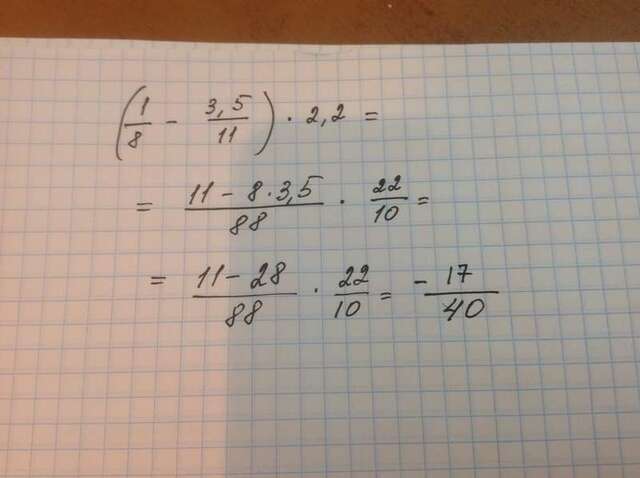 (1/8 - 3,5/11) · 2,2 =
= (11 - 8 · 3,5)/88 · 22/10 =
= (11 - 28)/88 · 22/10 = -17/40